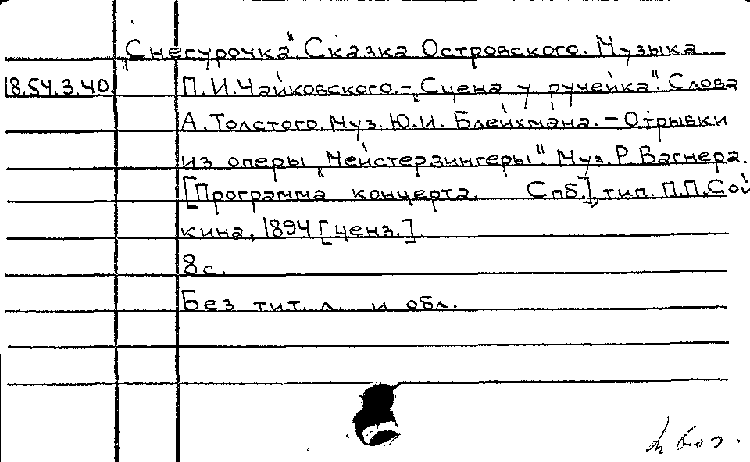 „Снегурочка". Сказка Островского. Музыка
18.54.3.40. П.И.Чайковского.-„Сцена у ручейка". Слова
А.Толстого. Муз. Ю.И. Блейхмана. - Отрывки
из оперы „Мейстерзингеры". Муз. Р. Вагнера.
[Программа концерта. Спб.], тип. П.П.Сой
кина, 1894 [ценз.].
8с.
Без тит. л. и обл.